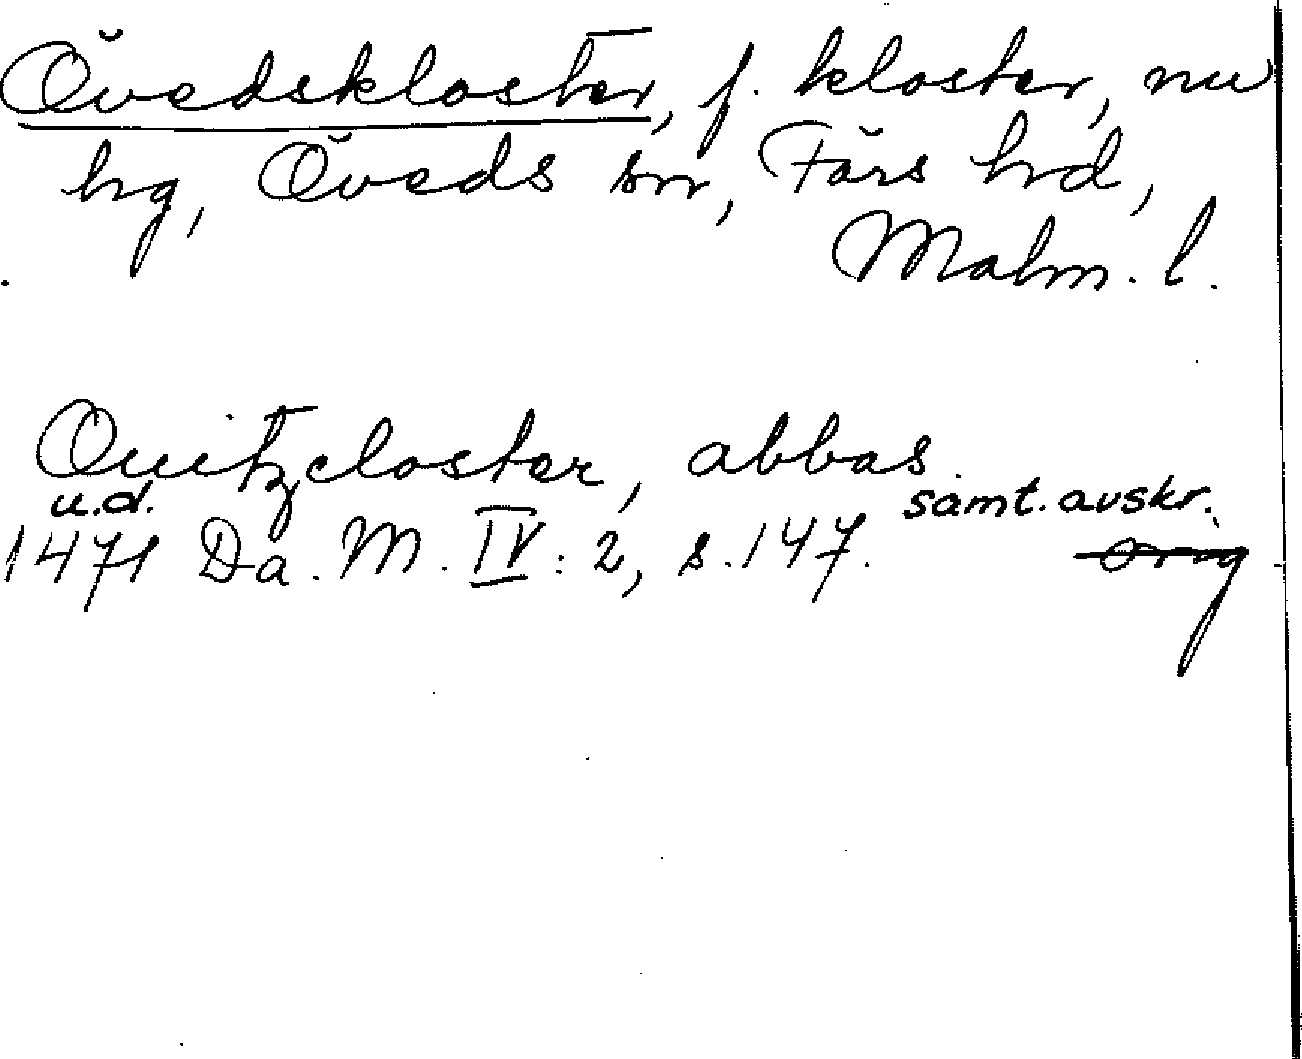 Övedskloster, f. kloster, nu
hg, Öveds sn, Färs hd,
Malm. l.
Ouitzcloster, abbas
u.d. samt. avskr.
1471 Da. M. IV: 2, s. 147. Orig